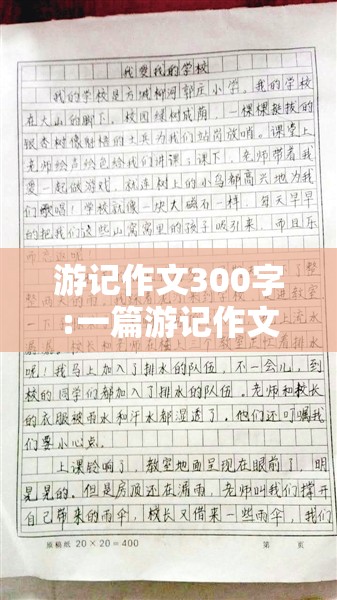 我爱我的学校
我的学校是方城柳河郭庄小学。我的学校
在大山的脚下,校园绿树成荫,一棵棵挺拔的
银杏树像魁梧的士兵为我们站岗放哨。课堂上
老师绘声绘色给我们讲课;课下,老师带着我
爱一起做游戏,就连树上的小鸟都高兴地为我
们歌唱!学校就像一块大磁石一样,每天早早
的把我们这些山窝窝里的孩子吸引来,而且乐
游记作文300字
:一篇游记作文
呢!我马上加入了排水的队伍,不一会儿,到
校的同学们都加入了排水的队伍。老师和校长
的衣服被雨水和汗水都湿透了。他们还叮嘱我
们要小心点。
上课铃响了,教室地面呈现在眼前了,明
晃晃的。但是房顶还在漏雨,老师叫我们撑开
自己带来的雨伞,校长又借来一些雨伞,我们
原稿纸 20×20=400 第 页